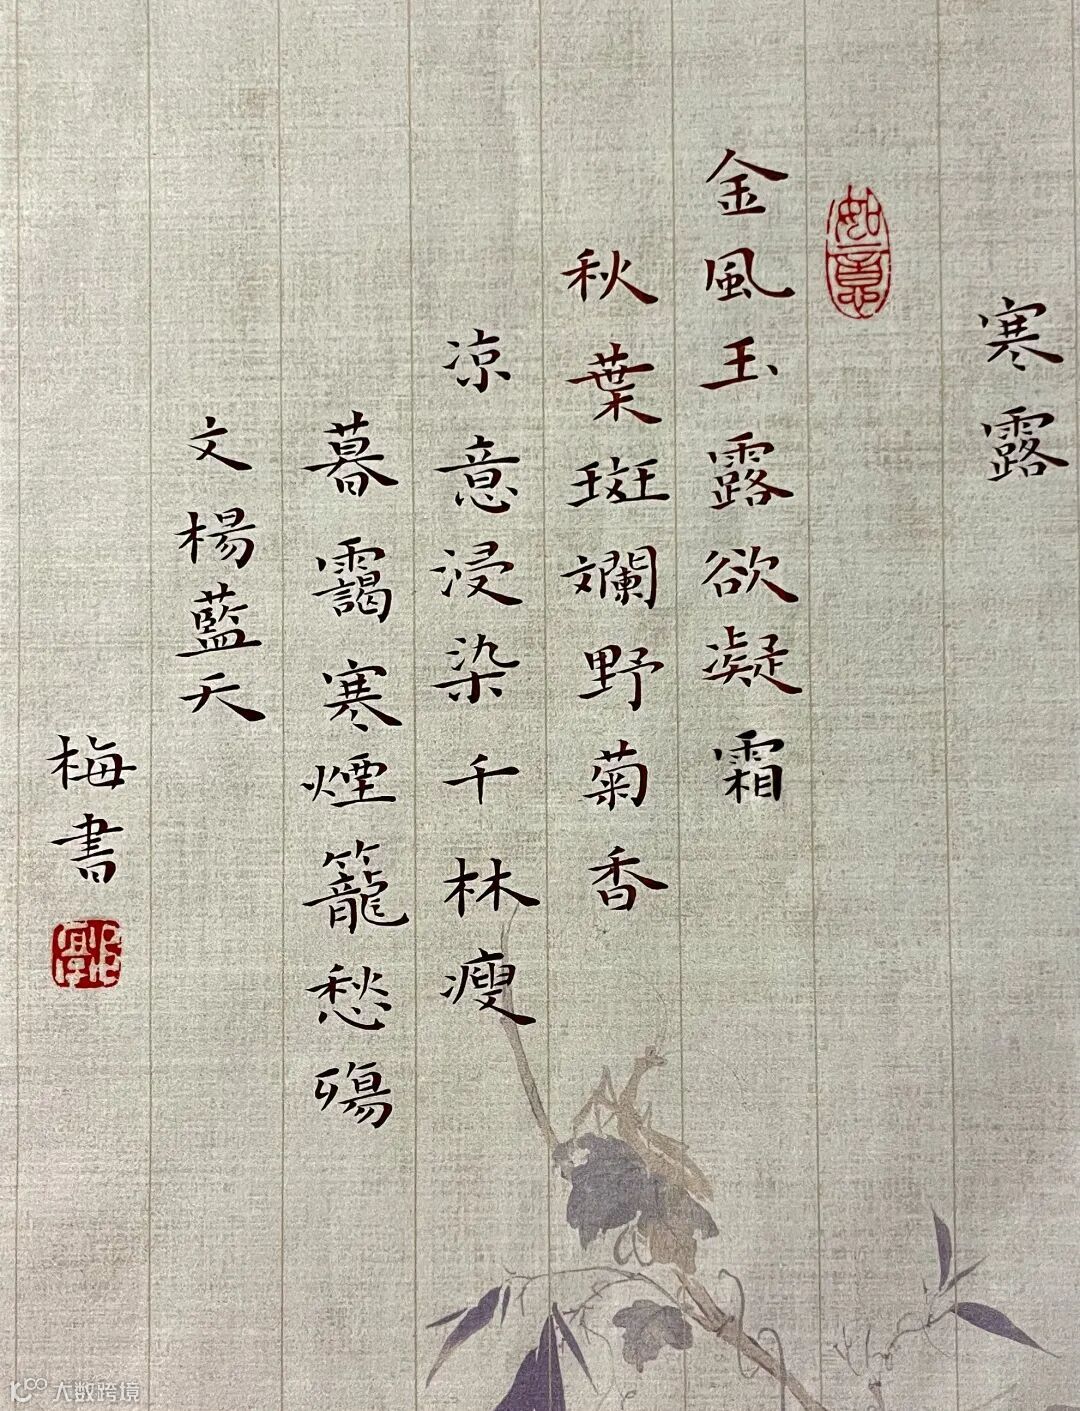 寒露
如意
金風玉露欲凝霜
秋葉斑斕野菊香
凉意浸染千林瘦
暮靄寒煙籠愁殤
文楊藍天
梅書
大数跨境